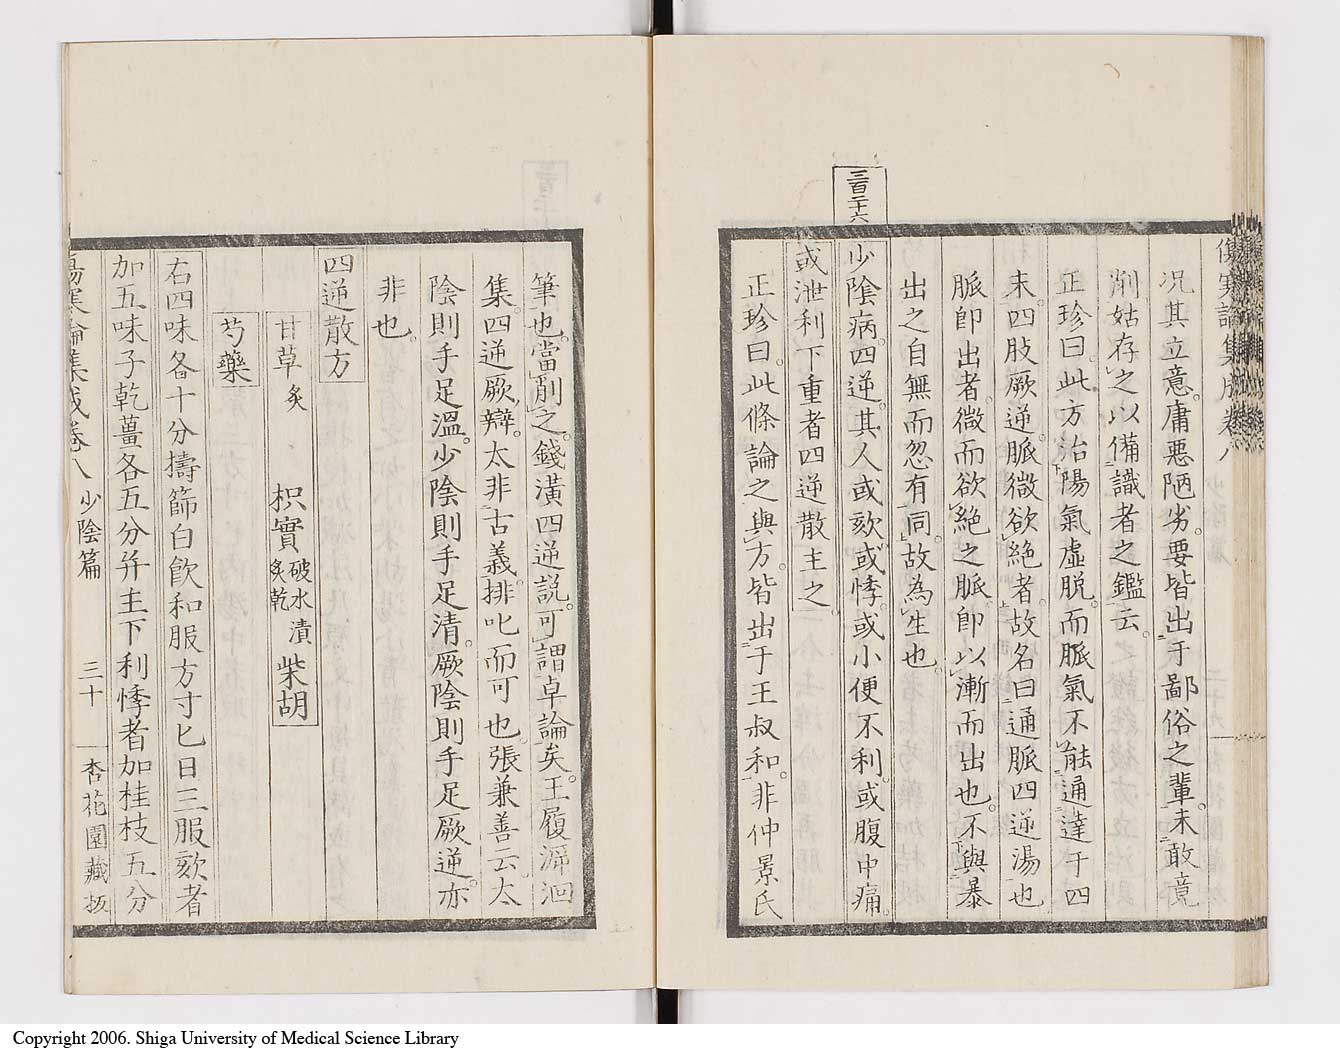 傷寒論集成卷八
況其立意。庸惡陋劣。要皆出于鄙俗之輩。未敢竟
削姑存之以備識者之鑑云。
正珍曰。此方治陽氣虛脱。而脈氣不能通達于四
末。四肢厥逆。脈微欲絶者。故名曰通脈四逆湯也
脈卽出者。微而欲絶之脈。卽以漸而出也。不與暴
出之自無而忽有同。故為生也。
三百二十六
少陰病。四逆。其人或欬。或悸。或小便不利。或腹中痛。
或泄利下重者四逆散主之
正珍曰。此條論之與方。皆出于王叔和。非仲景氏
筆也。當削之。錢潢四逆説。可謂卓論矣。王履溯洄
集。四逆厥辯。太非古義。排叱而可也。張兼善云太
陰則手足溫。少陰則手足清。厥陰則手足厥逆。亦
非也。
四逆散方
甘草炙 枳實破水漬炙乾 柴胡
芍藥
右四味各十分擣篩白飮和服方寸匕日三服欬者
加五味子乾薑各五分幷主下利悸者加桂枝五分
傷寒論集成卷八 少陰篇 三十 杏花園藏板
Copyright 2006. Shiga University of Medical Science Library